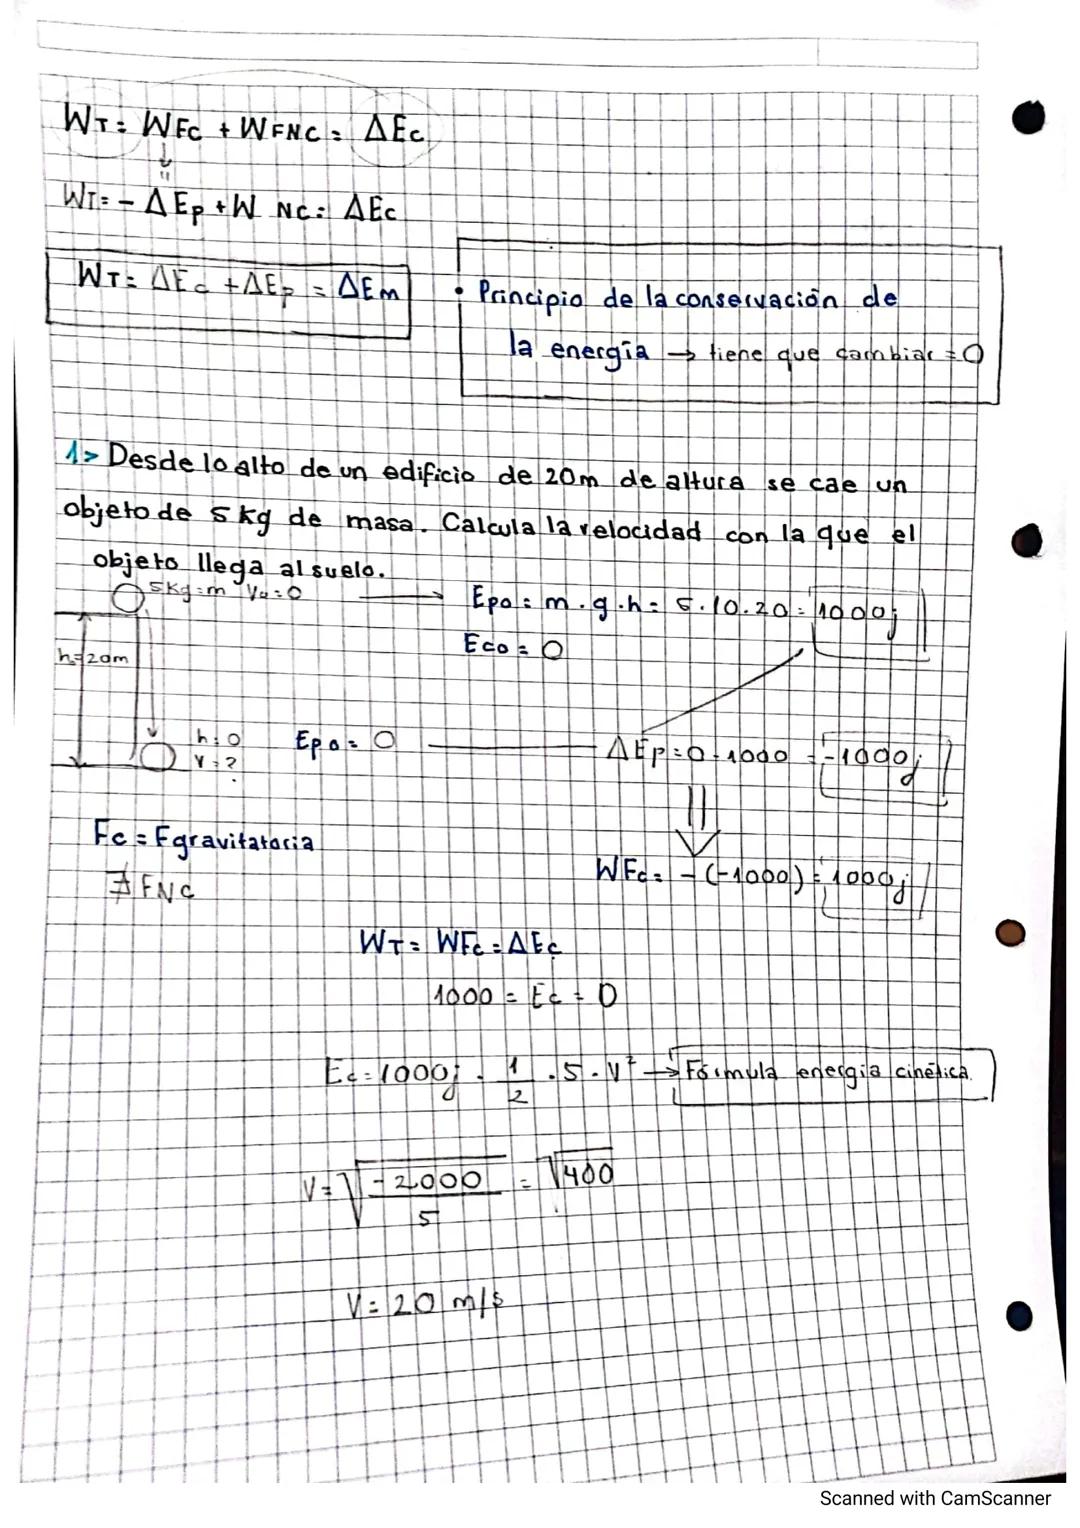 WT= WFC + WFNC = ΔEc
"
WT= - ΔEp + W NC= ΔEc
WT= ΔEc + ΔEp = ΔEm
• Principio de la conservación de
la energía → tiene que cambiar = 0
1> Desde lo alto de un edificio de 20m de altura se cae un
objeto de 5 kg de masa. Calcula la velocidad con la que el
objeto llega al suelo.
5kg=m V0=0 → Epo = m.g.h= 5.10.20= 1000j
Eco = 0
h=20m
h=0 Epo= 0 ΔEp=0-1000 = -1000j
V=?
Fc = Fgravitatoria
WFc= -(-1000) = 1000j
∄ FNC
WT= WFc = ΔEc
1000 = Ec - 0
Ec=1000j . 1/2 .5.V² → Fórmula energía cinética
V= √-2000/5 = √400
V= 20 m/s
Scanned with CamScanner